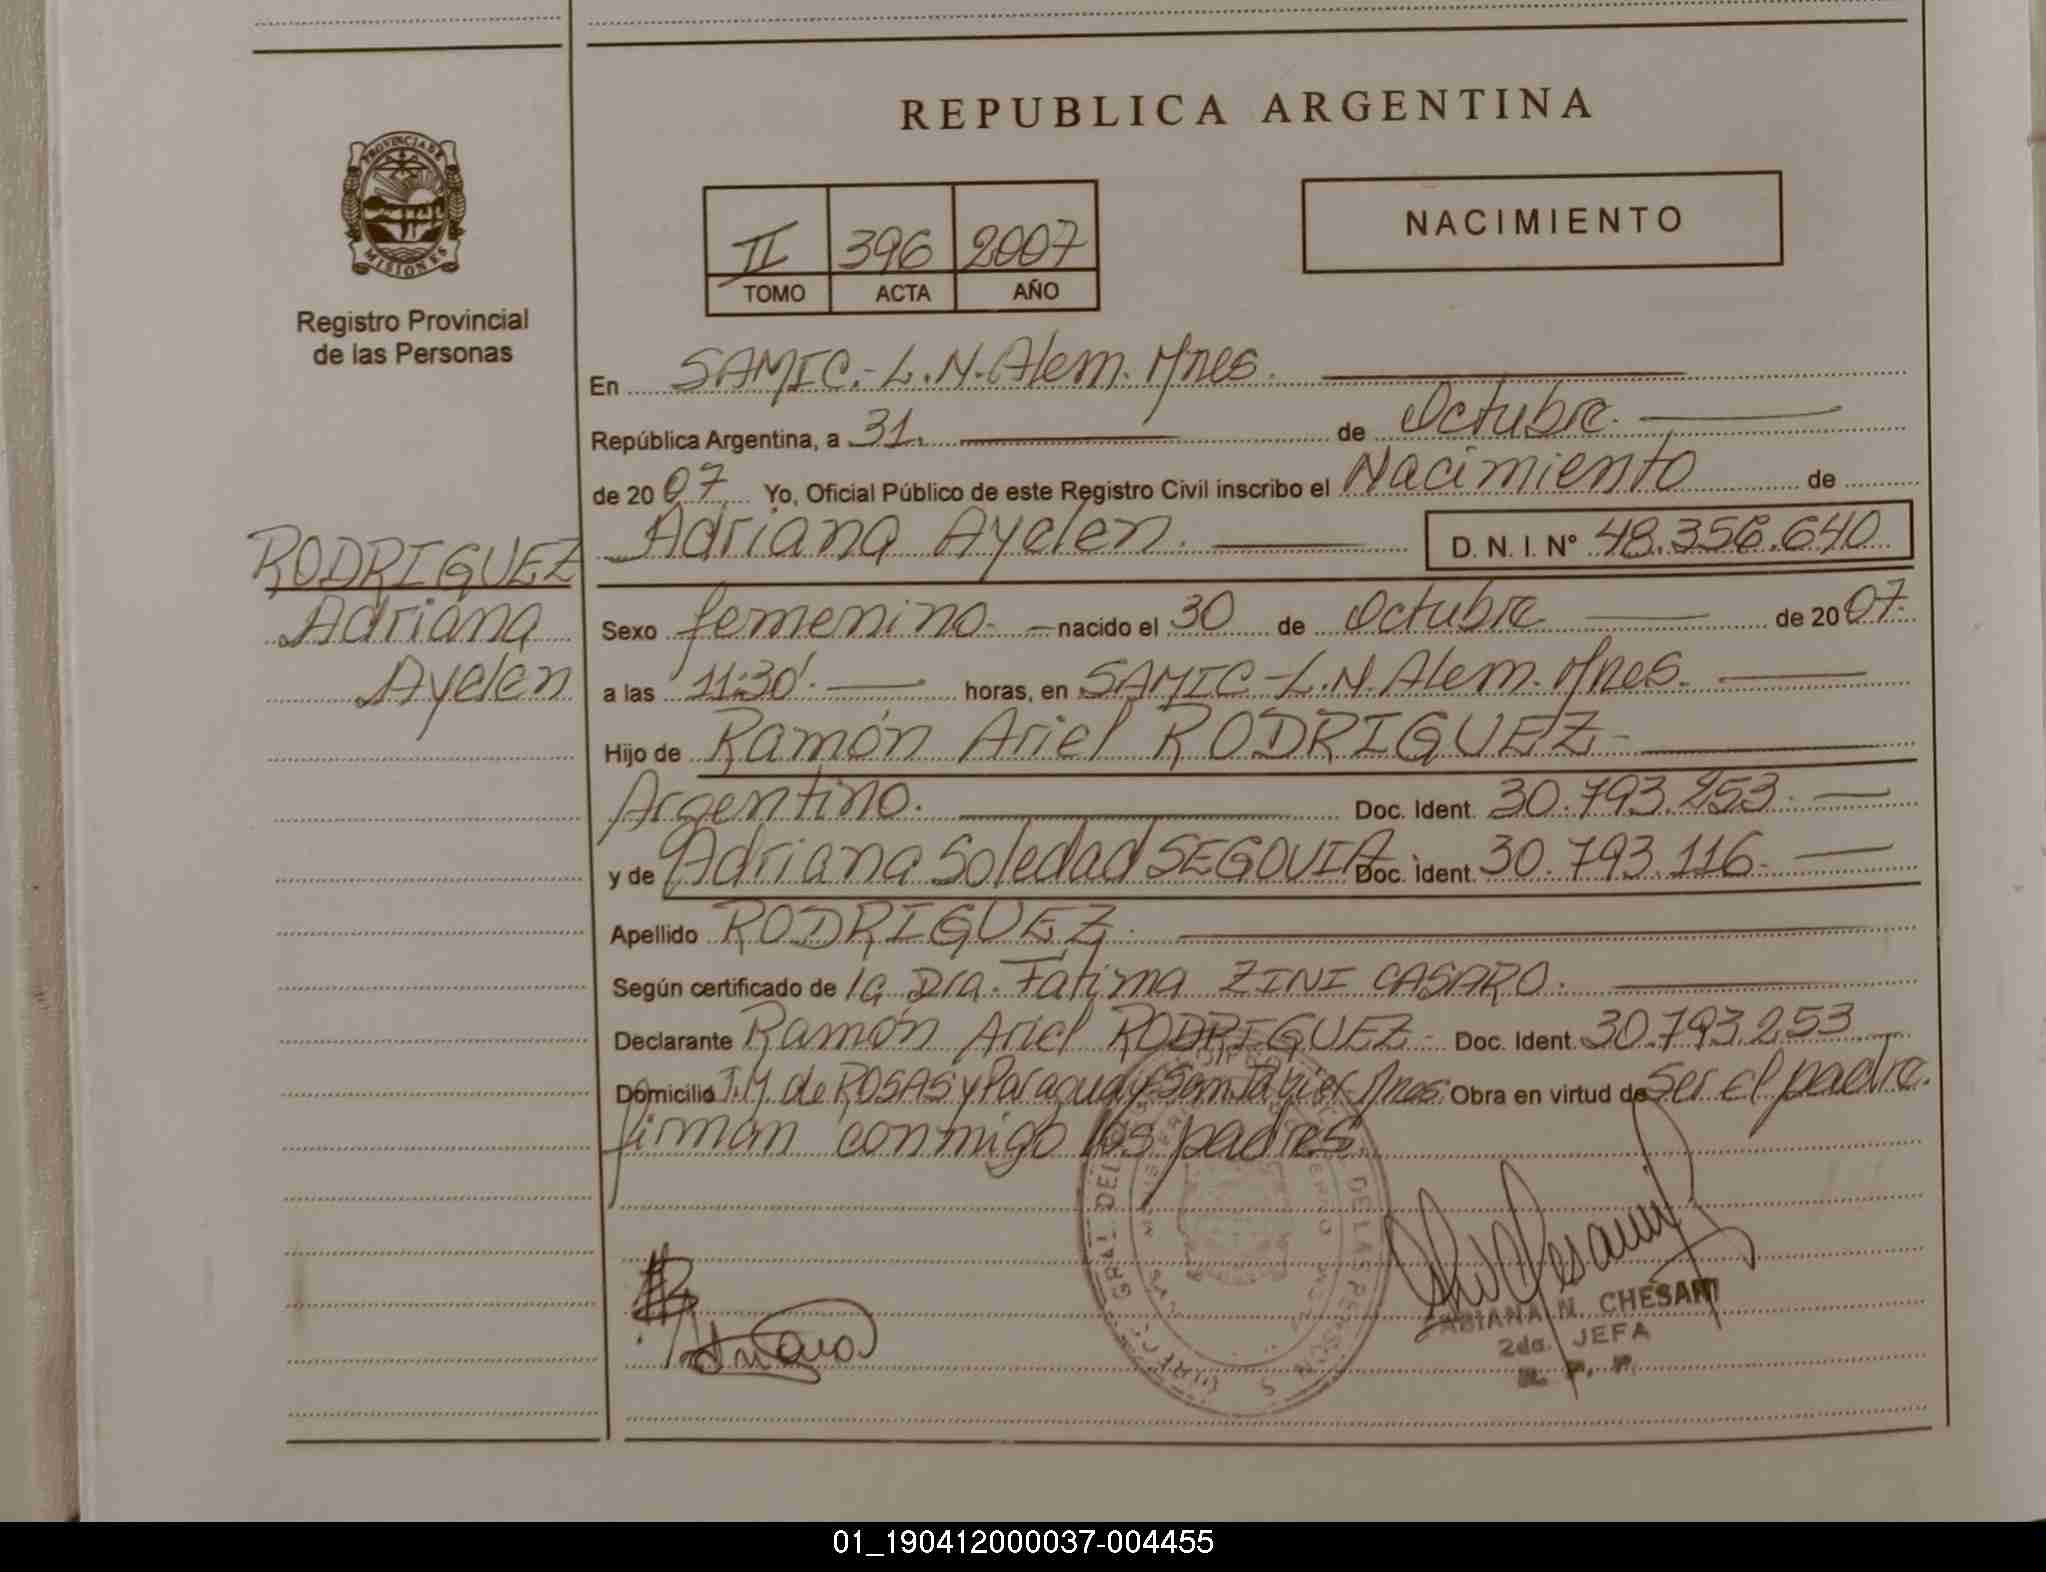 REPUBLICA ARGENTINA
PROVINCIA DE
MISIONES
Registro Provincial
de las Personas
II 396 2007
TOMO ACTA AÑO
NACIMIENTO
En SAMIC.-L.N.Alem. Mnes.
República Argentina, a 31. de Octubre.
de 2007 Yo, Oficial Público de este Registro Civil inscribo el Nacimiento de
Adriana Ayelen. D. N. I. Nº 48.356.640
RODRIGUEZ
Adriana
Ayelen
Sexo femenino. nacido el 30 de Octubre de 2007.
a las 11:30'. horas, en SAMIC-L.N.Alem. Mnes.
Hijo de Ramón Ariel RODRIGUEZ-
Argentino. Doc. Ident. 30.793.253.
y de Adriana Soledad SEGOVIA Doc. Ident. 30.793.116-
Apellido RODRIGUEZ.
Según certificado de la Dra. Fatima ZINI CASARO.
Declarante Ramón Ariel RODRIGUEZ- Doc. Ident. 30.793.253
Domicilio J.M. de ROSAS y Paraguay-San Javier-Mnes. Obra en virtud de Ser el padre.
firman conmigo los padres.
CHESANI
2da. JEFA
01_190412000037-004455